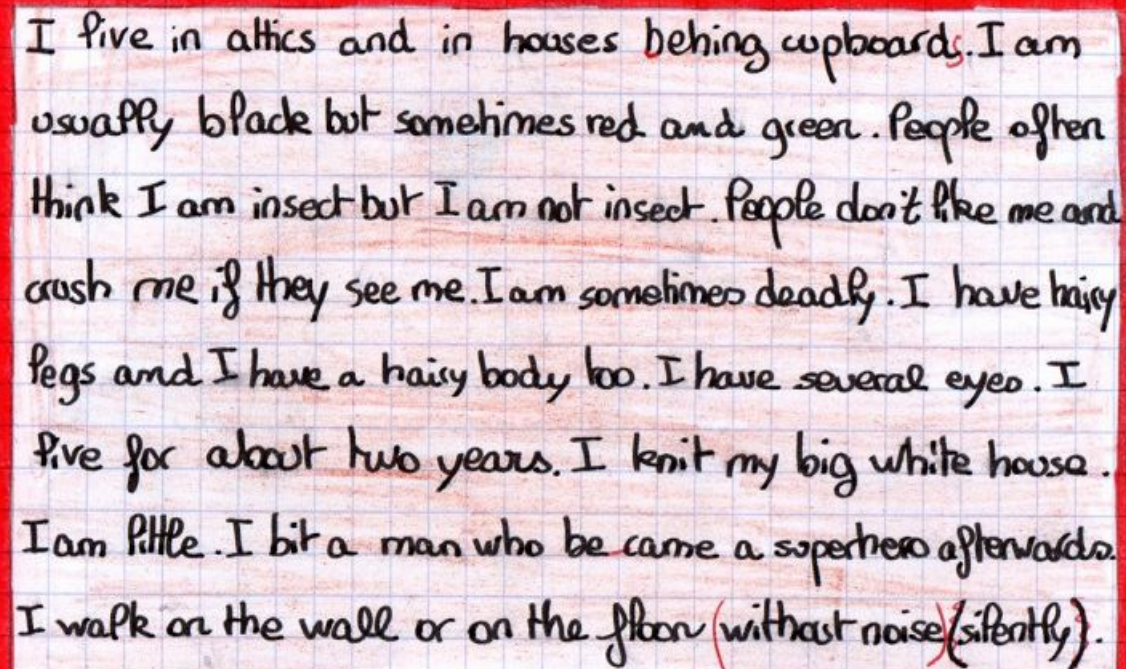 I live in attics and in houses behing cupboards. I am
usually black but sometimes red and green. People often
think I am insect but I am not insect. People don't like me and
crush me if they see me. I am sometimes deadly. I have hairy
legs and I have a hairy body too. I have several eyes. I
live for about two years. I knit my big white house.
I am little. I bit a man who be came a superhero afterwards.
I walk on the wall or on the floor (without noise) (silently).